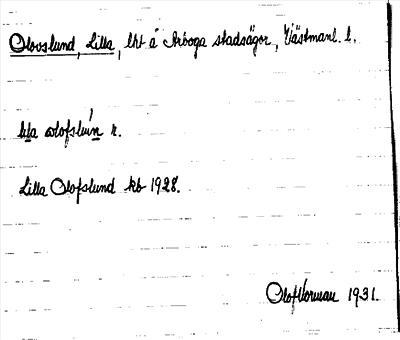 Olovslund, Lilla, lht å Arboga stadsägor, Västmanl. l.
lıla ωlofslún r.
Lilla Olofslund kb 1928.
Olof Vorman 1931.